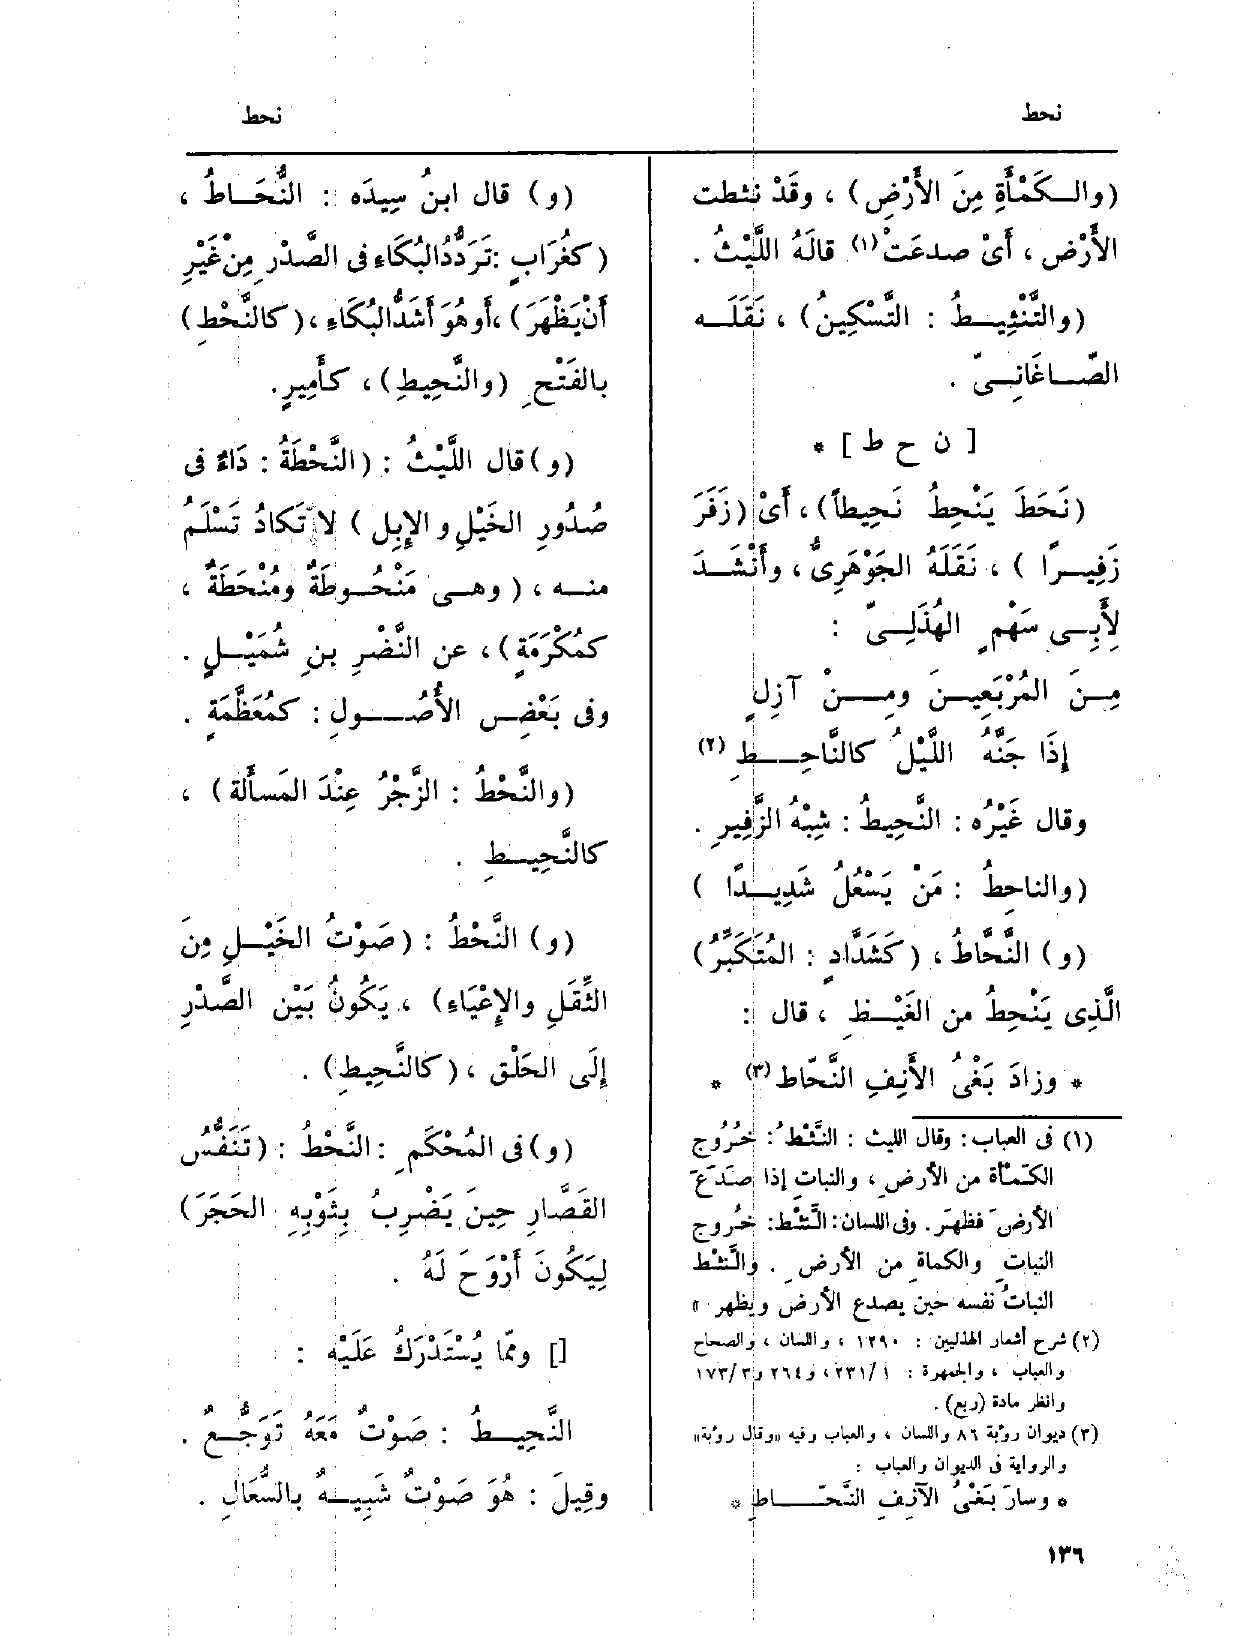 نحط
نحط
(والكَمْأَةِ مِنَ الأَرْضِ) ، وقَدْ نثطت
الأَرْض ، أَىْ صدعَتْ (١) قالَهُ اللَّيْثُ .
(والتَّنْثِيطُ : التَّسْكِينُ) ، نَقَلَه
الصّاغَانِىّ .
[ ن ح ط ] *
(نَحَطَ يَنْحِطُ نَحِيطاً) ، أَىْ (زَفَرَ
زَفِيرًا ) ، نَقَلَهُ الجَوْهَرِىُّ ، وأَنْشَدَ
لِأَبِى سَهْمٍ الهُذَلِىّ :
مِنَ المُرْبَعِينَ ومِنْ آزِلٍ
إِذَا جَنَّهُ اللَّيْلُ كالنَّاحِطِ (٢)
وقال غَيْرُه : النَّحِيطُ : شِبْهُ الزَّفِيرِ .
(والناحِطُ : مَنْ يَسْعُلُ شَدِيدًا )
(و) النَّحَّاطُ ، (كَشَدَّادٍ : المُتَكَبِّرُ)
الَّذِى يَنْحِطُ من الغَيْظِ ، قال :
* وزادَ بَغْىُ الأَنِفِ النَّحّاط (٣) *
(١) فى العباب : وقال الليث : النَّثْط : خُرُوج
الكَمْأة من الأرضِ ، والنباتِ إذا صَدَعَ
الأرضَ فظهَر . وفى اللسان : النَّثْط : خُروج
النباتِ والكماةِ من الأرضِ . والنَّثْط
النباتُ نفسه حين يصدع الأرض ويظهر »
(٢) شرح أشعار الهذليين : ١٢٩٠ ، واللسان ، والصحاح
والعباب ، والجمهرة : ١ /٢٣١ ، و٢٦٤ و٣ /١٧٣
وانظر مادة (ربع) .
(٣) ديوان رؤبة ٨٦ واللسان ، والعباب وفيه «وقال رؤبة»
والرواية فى الديوان والعباب :
* وسارَ بَغْىُ الآنِفِ النَّحّاطِ *
(و) قال ابنُ سِيدَه : النُّحَاطُ ،
(كغُرَابٍ : تَرَدُّدُ البُكَاءِ فى الصَّدْرِ مِنْ غَيْرِ
أَنْ يَظْهَرَ) ، أو هُوَ أَشَدُّ البُكَاءِ ، (كالنَّحْطِ)
بالفَتْحِ (والنَّحِيطِ) ، كأَمِيرٍ.
(و) قال اللَّيْثُ : (النَّحْطَةُ : دَاءٌ فى
صُدُورِ الخَيْلِ والإِبِلِ ) لا تَكادُ تَسْلَمُ
منه ، ( وهى مَنْحُوطَةٌ ومُنْحَطَةٌ ،
كمُكْرَمَةٍ) ، عن النَّضْرِ بنِ شُمَيْلٍ .
وفى بَعْضِ الأُصُولِ : كمُعَظَّمَةٍ .
(والنَّحْطُ : الزَّجْرُ عِنْدَ المَسأَلة) ،
كالنَّحِيطِ .
(و) النَّحْطُ : (صَوْتُ الخَيْلِ مِنَ
الثِّقَلِ والإِعْيَاءِ) ، يَكُونُ بَيْن الصَّدْرِ
إِلَى الحَلْق ، (كالنَّحِيطِ) .
(و) فى المُحْكَمِ : النَّحْطُ : (تَنَفُّس
القَصَّارِ حِينَ يَضْرِبُ بِثَوْبِهِ الحَجَرَ)
لِيَكُونَ أَرْوَحَ لَهُ .
[] وممّا يُسْتَدْرَكُ عَلَيْه :
النَّحِيطُ : صَوْتٌ مَعَهُ تَوَجُّعٌ .
وقِيلَ : هُوَ صَوْتٌ شَبِيهٌ بالسُّعَالِ .
١٣٦